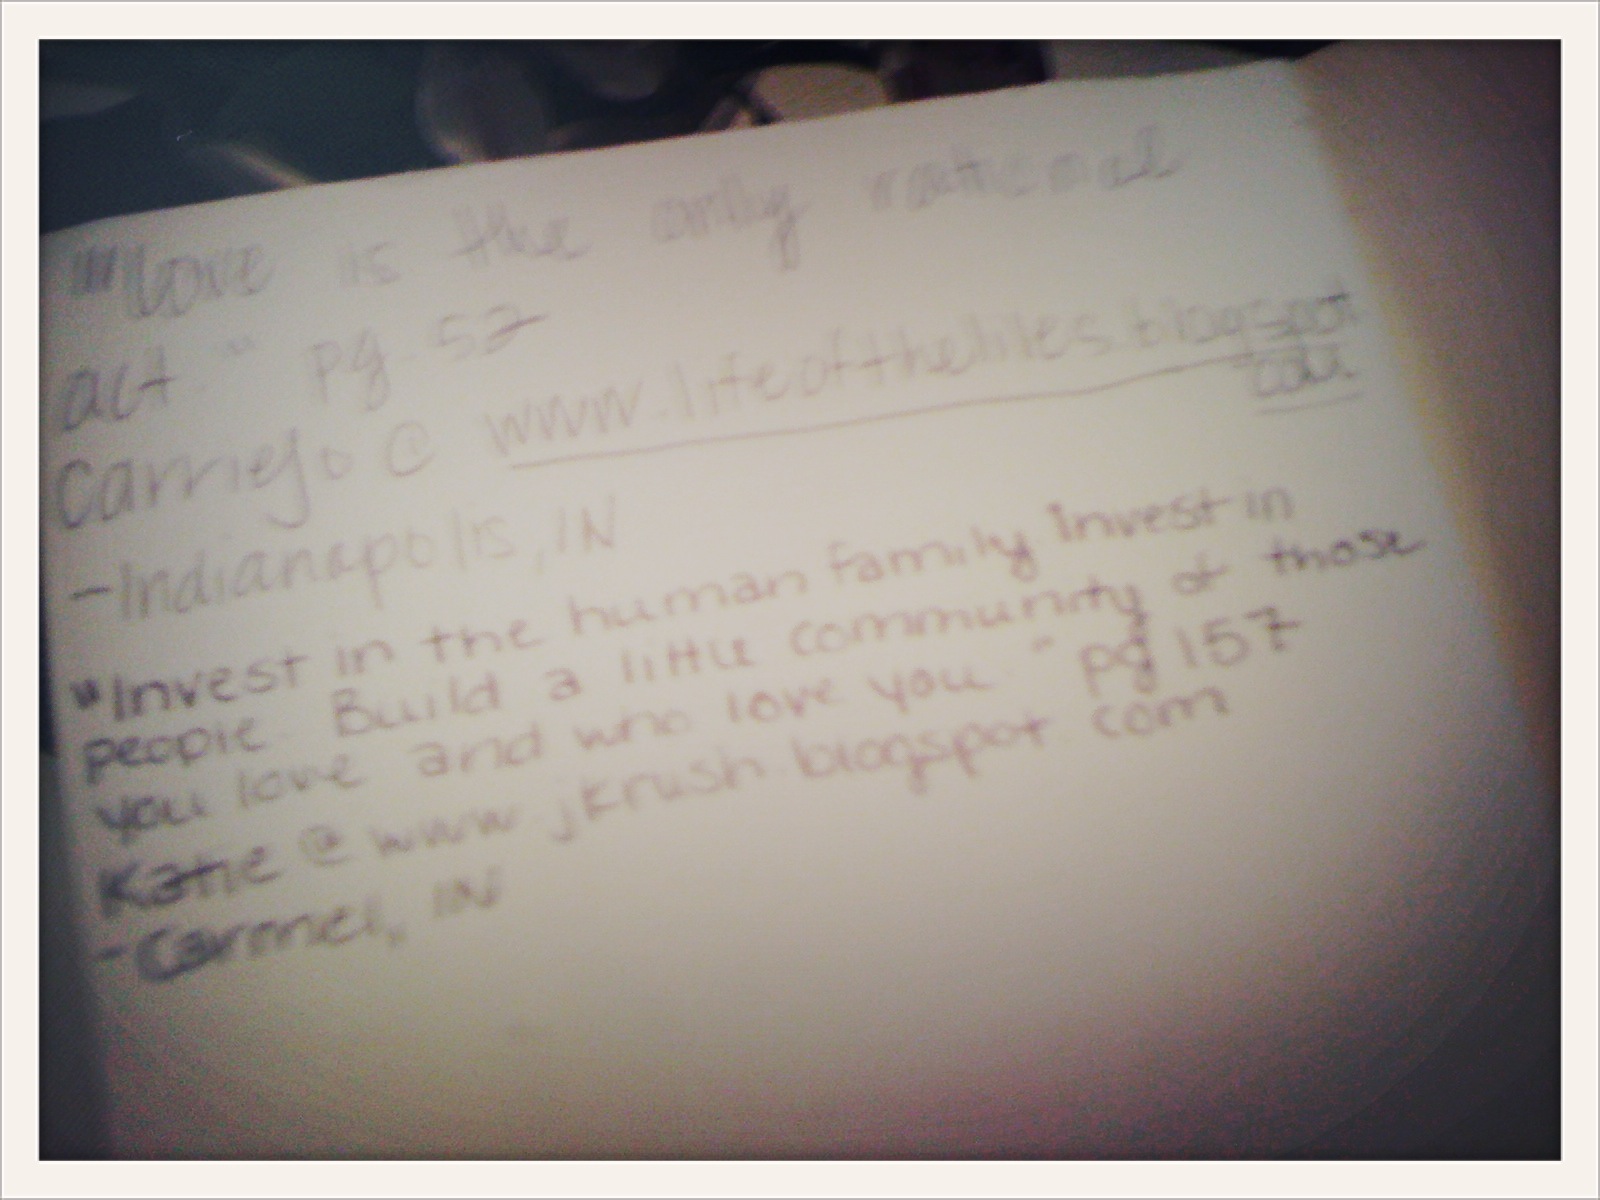 "Love is the only rational
act." pg. 52
Carriejo @ www.lifeoftheliles.blogspot
.com
-Indianapolis, IN
"Invest in the human family Invest in
people. Build a little community of those
you love and who love you." pg 157
Katie @ www.jkrush.blogspot.com
-Carmel, IN